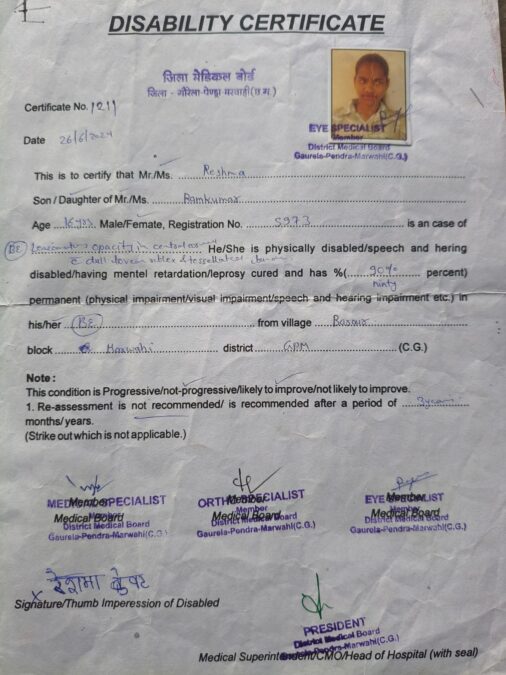 DISABILITY CERTIFICATE
जिला मेडिकल बोर्ड
जिला - गौरेला-पेण्ड्रा मरवाही (छ.ग.)
Certificate No. 1211
EYE SPECIALIST
Member
District Medical Board
Gaurela-Pendra-Marwahi(C.G.)
Date 26/6/2024
This is to certify that Mr./Ms. Reshma
Son / Daughter of Mr./Ms. Ramkumar
Age 16 yrs. Male/Female, Registration No. 5973 is an case of
BE opacity in He/She is physically disabled/speech and hering
dull foveal reflex & tessellated
disabled/having mentel retardation/leprosy cured and has %( 90% percent)
ninty
permanent (physical impairment/visual impairment/speech and hearing impairment etc.) in
his/her BE from village
block Marwahi district GPM (C.G.)
Note :
This condition is Progressive/not-progressive/likely to improve/not likely to improve.
1. Re-assessment is not recommended/ is recommended after a period of 3 years
months/ years.
(Strike out which is not applicable.)
MEDICAL SPECIALIST ORTHO SPECIALIST EYE SPECIALIST
Member Member Member
Member Member Member
Medical Board Medical Board Medical Board
District Medical Board District Medical Board District Medical Board
Gaurela-Pendra-Marwahi(C.G.) Gaurela-Pendra-Marwahi(C.G.) Gaurela-Pendra-Marwahi(C.G.)
रेशमा केवट
Signature/Thumb Imperession of Disabled
PRESIDENT
District Medical Board
Gaurela-Pendra-Marwahi(C.G.)
Medical Superintendent/CMO/Head of Hospital (with seal)